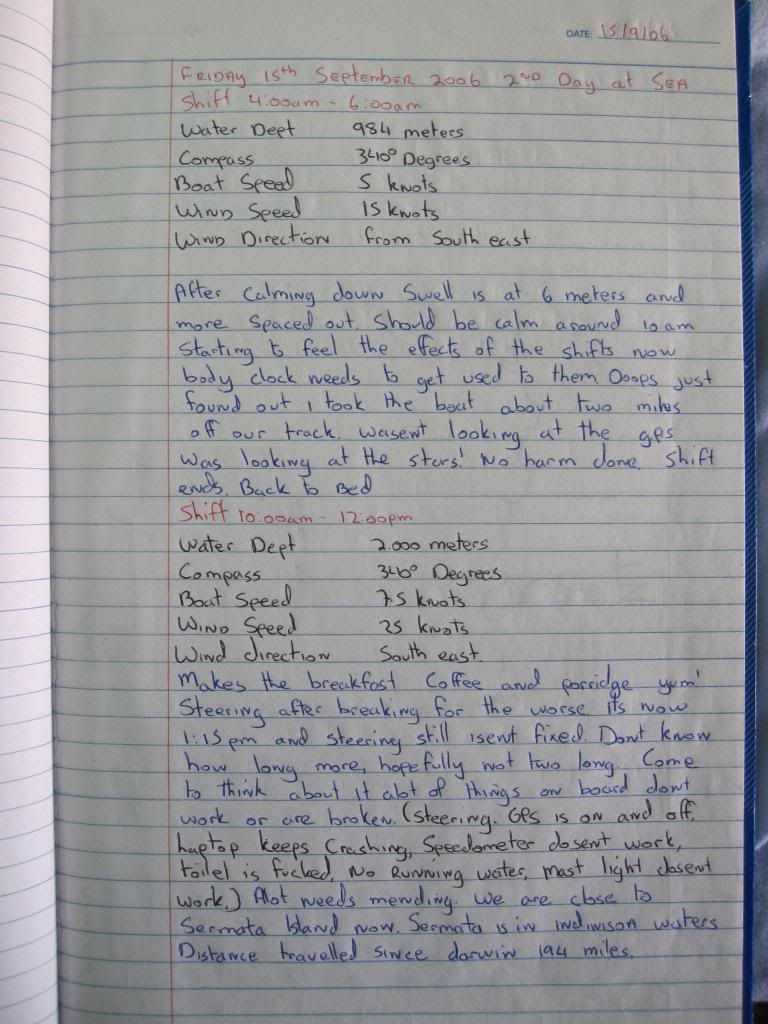 DATE: 15/9/06
FRIDAY 15th September 2006 2ND Day at SEA
Shift 4:00am - 6:00am
Water Dept 984 meters
Compass 340° Degrees
Boat Speed 5 knots
Wind Speed 15 knots
Wind Direction from South east
After Calming down Swell is at 6 meters and
more spaced out. Should be calm around 10 am
Starting to feel the effects of the shifts now
body clock needs to get used to them. Ooops just
found out I took the boat about two miles
off our track. Wasent looking at the gps
was looking at the stars! No harm done. Shift
ends. Back to Bed
Shift 10:00am - 12:00pm
Water Dept 2.000 meters
Compass 340° Degrees
Boat Speed 7.5 knots
Wind Speed 25 knots
Wind direction South east.
Makes the breakfast Coffee and porridge yum!
Steering after breaking for the worse its now
1:15pm and steering still isent fixed. Dont know
how long more, hopefully not two long. Come
to think about it alot of things on board dont
work or are broken. (Steering. GPS is on and off.
Laptop keeps Crashing, Speedometer dosent work,
toilet is fucked, No Running water, mast light dosent
work.) Alot needs mending. We are close to
Sermata Island now. Sermata is in indinison waters
Distance travelled since darwin 194 miles.